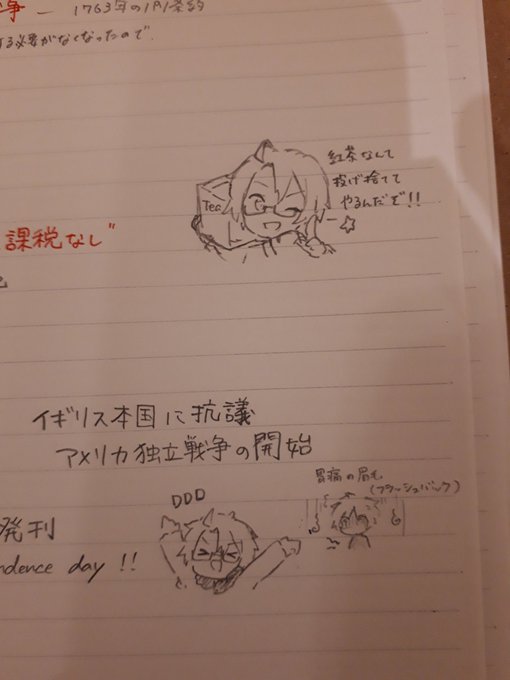 争 — 1763年のパリ条約
する必要がなくなったので.
紅茶なんて
投げ捨てて
やるんだぞ!!
Tea
課税なし"
イギリス本国に抗議
アメリカ独立戦争の開始
胃痛の眉毛
(フラッシュバック)
DDD
発刊
ndence day !!